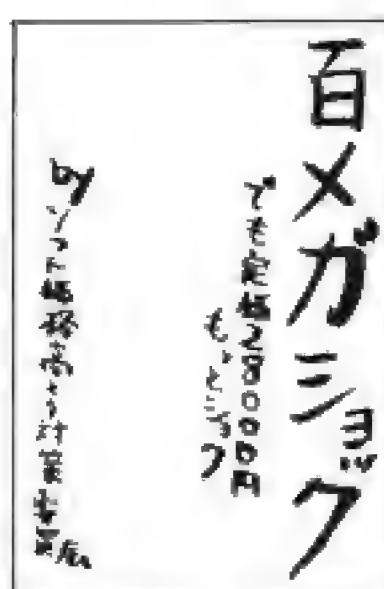 百メガショック
でも定価28000円
もっとショック
byソフト価格高とう対策委員